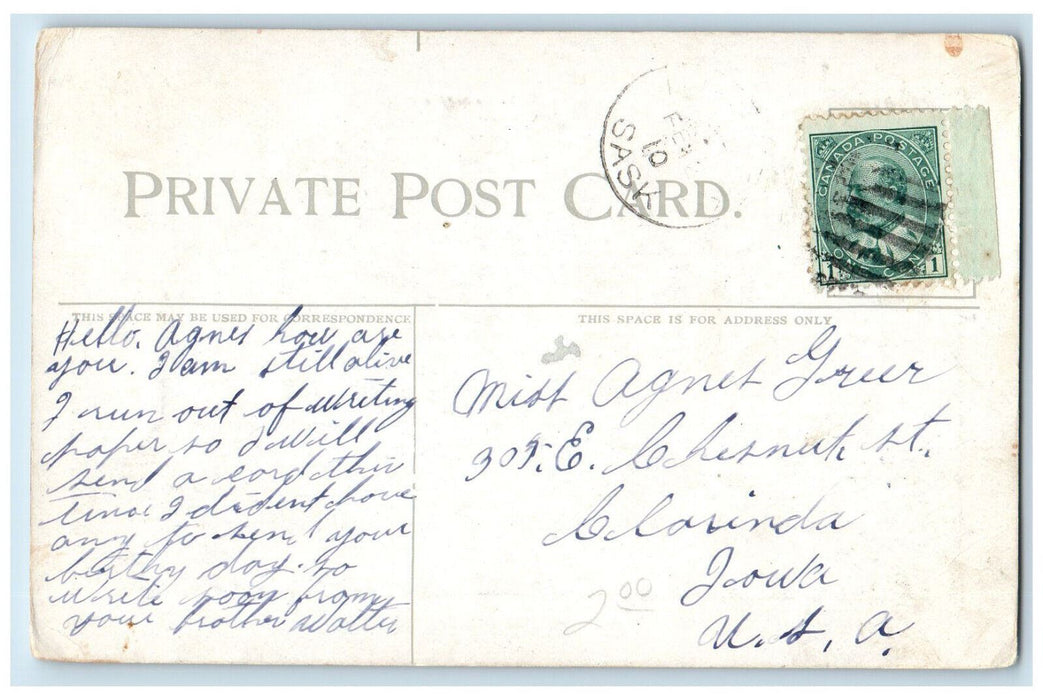 FEB
10
SASK
CANADA POSTAGE
1 CENT 1
PRIVATE POST CARD.
THIS SPACE MAY BE USED FOR CORRESPONDENCE
Hello. Agnes how are
you. I am still alive
I run out of writing
paper so I will
send a card this
time I dident have
any to send your
birthy day. so
write soon from
your brother Walter
THIS SPACE IS FOR ADDRESS ONLY
Miss Agnes Greer
305. E. Chesnut st.,
Clarinda
Iowa
U.S.A.
2 00